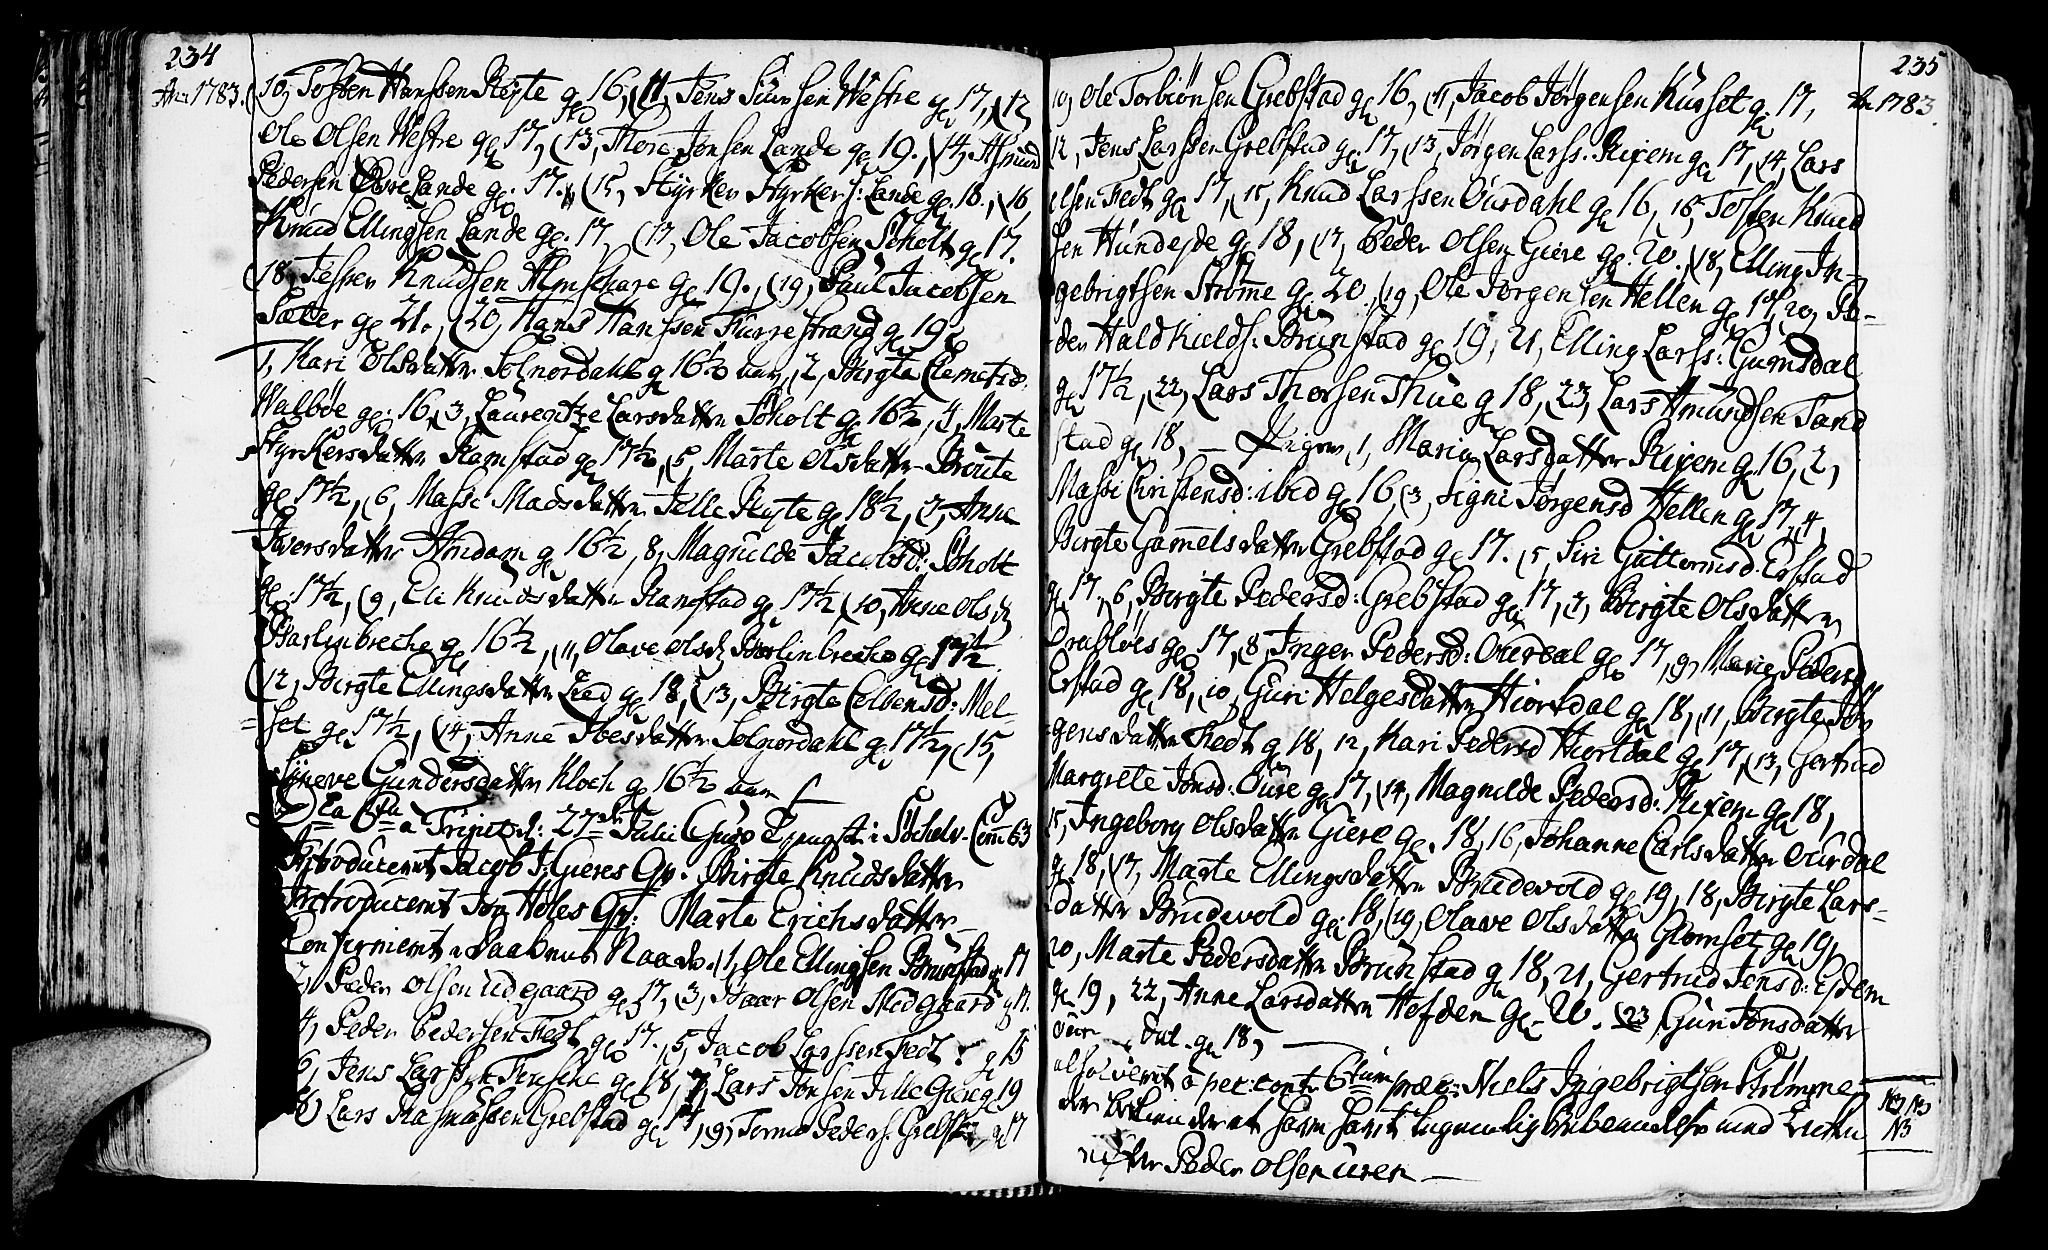 234
Ao 1783.
(10, Tosten Hanssen Skyte gl 16, (11, Jens Siursen Westre gl 17, (12
Ole Olsen Westre gl 17, (13, Thore Jonsen Lande gl 19. (14, Asmund
Pedersen Øvre Lande gl. 17. (15, Styrker Styrkers: Lande gl. 18., (16
Knud Ellingsen Lande gl. 17, (17, Ole Jacobsen Søholt gl 17.
(18, Jesper Knudsen Almschare gl 19., (19, Paul Jacobsen
Sæter gl 21., (20, Hans Hanssen Kurrestrand gl 19
1, Kari Olsdatter Solnordahl gl 16½ aar, 2, Birgte Clemetsd:
Walbøe gl: 16, (3, Laurentze Larsdatter Søholt gl 16½, 4, Marte
Styrkersdatter Ramstad gl 17½, (5, Marte Olsdatter Broute
gl 17½, (6, Massi Madsdatter Jelle Skyte gl 18½, 7, Anne
Iversdatter Amdam gl 16½, 8, Magnilde Jacobsd: Søholt
gl. 17½, (9, Eli Knudsdatter Ramstad gl 17½ (10, Anne Olsd
Barlinbreche gl 16½, 11, Olave Olsd Barlinbreche gl 17½
(12, Birgte Ellingsdatter Lied gl 18, (13, Birgte Colbensd: Mel-
=set gl 17½, (14, Anne Ibesdatter Solnordahl gl 17½, (15,
Synneve Gundersdatter Kloch gl 16½ aar
Dca 6ta a Trinit d: 27de Julii Guds Tieneste i Søchelv. Com 63
Introduceret Jacob J: Gieres Qv: Birgte Knudsdatter
Introduceret Jon Holes Qv: Marte Erichsdatter
Confirmeret 1, Ole Ellingsen Brunstad gl 17
2, Peder Olsen Udgaard gl 17, (3, Baar Olsen Medgaard gl 17.
4, Peder Pedersen Fedt gl 17. 5, Jacob Larssen Fedt gl 15
6, Jens Larssen gl 18, 7, Lars Jonsen Lille Giere gl 19
8, Lars Rasmussen Grebstad gl 17, 9, Peders: Grebstad gl 17
235
Ao 1783.
10, Ole Torbiønsen Grebstad gl 16, (11, Jacob Jørgensen Kurset gl 17,
12, Jens Larssen Grebstad gl 17, (13, Jørgen Larss. Rixem gl 17, 14, Lars
Elsen Fedt gl 17, 15, Knud Larssen Ouredahl gl 16, 16, Tosten Knud
sen Hundejde gl 18, (17, Peder Olsen Giere gl. 20. (18, Elling In-
gebrigtsen Strømme gl 20. (19, Ole Jørgensen Hellen gl 17, 20, Pe-
der Haldkields: Brunstad gl 19, 21, Elling Larss: Gumsdal
gl 17½, (22, Lars Thorsen Thue gl 18, 23, Lars Amundsen Tand
stad gl 18, — Piger 1, Maria Larsdatter Rixem gl 16, 2,
Massi Christensd: ibid gl 16, (3, Signe Jørgensd Hellen gl 17, 4,
Birgte Gamelsdatter Grebstad gl 17. (5, Siri Guttormsd. Erstad
gl 17, 6, Birgte Pedersd: Grebstad gl 17, 7, Birgte Olsdatter
Drabløes gl 17, 8, Inger Pedersd: Ouredal gl 17, 9, Marie Pedersd
Erstad gl 18, 10, Guri Helgesdatter Hiortdal gl 18, 11, Birgte Jør
gensdatter Fedt gl 18, 12, Kari Pedersd Hiortdal gl 17, (13, Gertrud
Margrete Jonsd: Oure gl 17, (14, Magnilde Pedersd: Rixem gl 18,
15, Ingeborg Olsdatter Giere gl. 18, 16, Johanne Carlsdatter Ourdal
gl 18, (17, Marte Ellingsdatter Brudevold gl 19, 18, Birgte Lars-
datter Brudevold gl: 18, (19, Olave Olsdatter Glomset gl 19,
20, Marte Pedersdatter Brunstad gl 18, 21, Gertrud Jensd: Esdem
gl 19, 22, Anne Larsdatter Hofden gl. 20. (23 Guri Jonsdatter
Ouredal gl 18, —
absolverit a pec: contr: 6tum præc: Niels Ingebrigtsen Strømme
N3 N3
N3
Peder Olsen Uren —